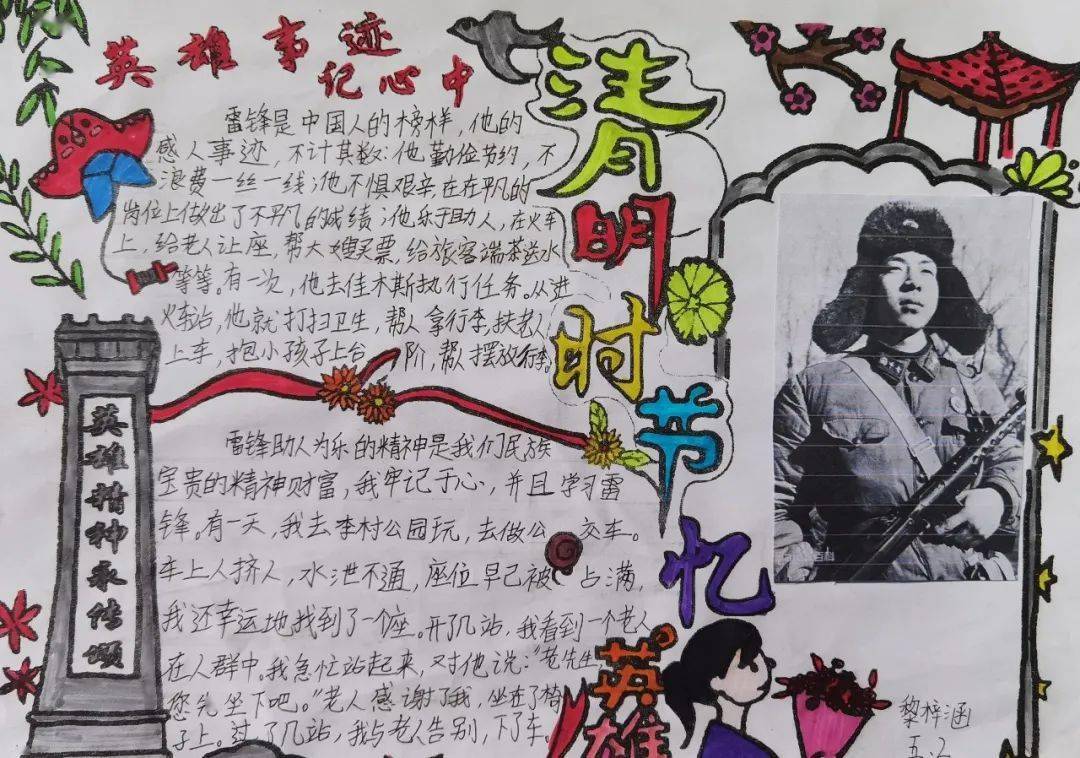 英雄事迹
记心中
清明时节
忆
英雄
雷锋是中国人的榜样，他的
感人事迹，不计其数：他勤俭节约，不
浪费一丝一线；他不惧艰辛在在平凡的
岗位上做出了不平凡的成绩；他乐于助人，在火车
上，给老人让座，帮大嫂买票，给旅客端茶送水
等等。有一次，他去佳木斯执行任务。从进
火车站，他就打扫卫生，帮人拿行李，扶老人
上车，抱小孩子上台阶，帮人摆放行李。
雷锋助人为乐的精神是我们民族
宝贵的精神财富，我牢记于心，并且学习雷
锋。有一天，我去李村公园玩，去做公交车。
车上人挤人，水泄不通，座位早已被占满，
我还幸运地找到了一个座。开了几站，我看到一个老人
在人群中。我急忙站起来，对他说：“老先生，
您先坐下吧。”老人感谢了我，坐在了椅
子上。过了几站，我与老人告别，下了车。
英雄精神永传颂
黎梓涵